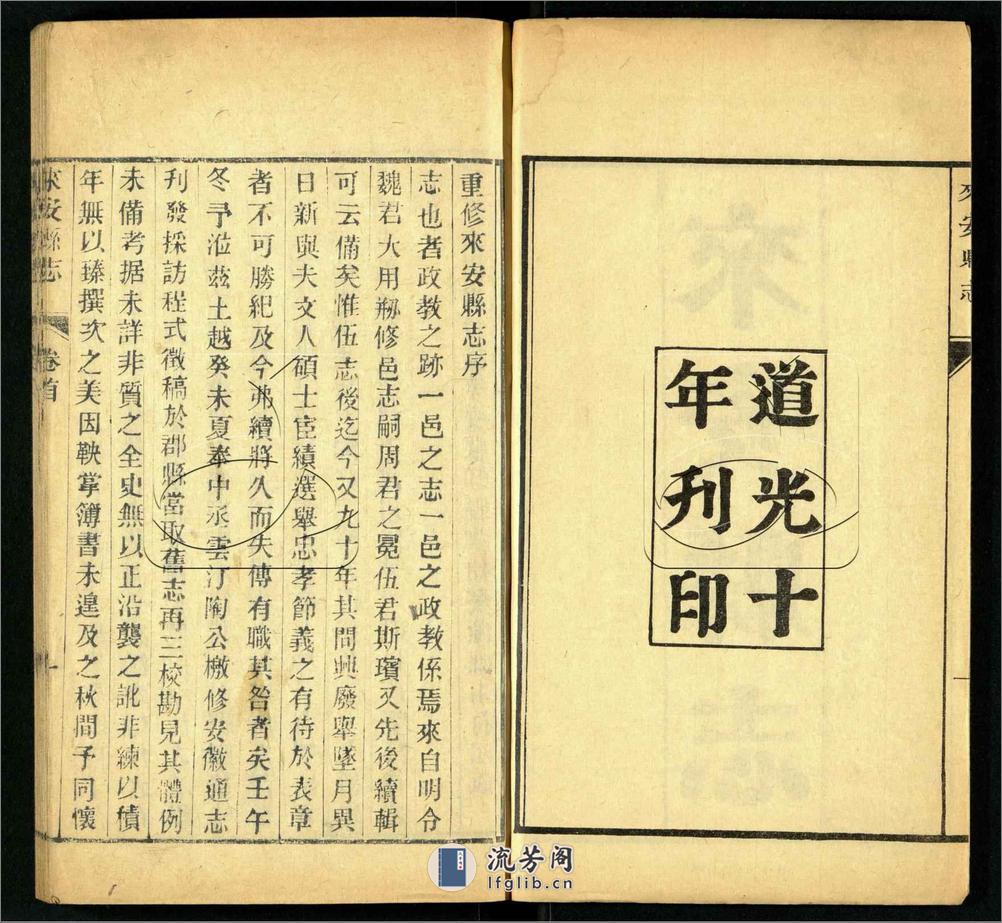 來安縣志
道光十
年刊印
重修來安縣志序
志也者政教之跡一邑之志一邑之政教係焉來自明令
魏君大用刱修邑志嗣周君之冕伍君斯璸又先後續輯
可云備矣惟伍志後迄今又九十年其間興廢舉墜月異
日新與夫文人碩士宦績選舉忠孝節義之有待於表章
者不可勝紀及今弗續將久而失傳有職其咎者矣壬午
冬予涖茲土越癸未夏奉中丞雲汀陶公檄修安徽通志
刊發採訪程式徵稿於郡縣當取舊志再三校勘見其體例
未備考据未詳非質之全史無以正沿襲之訛非練以積
年無以臻撰次之美因鞅掌簿書未遑及之秋間予同懷
來安縣志 卷首 一
流芳阁
lfglib.cn